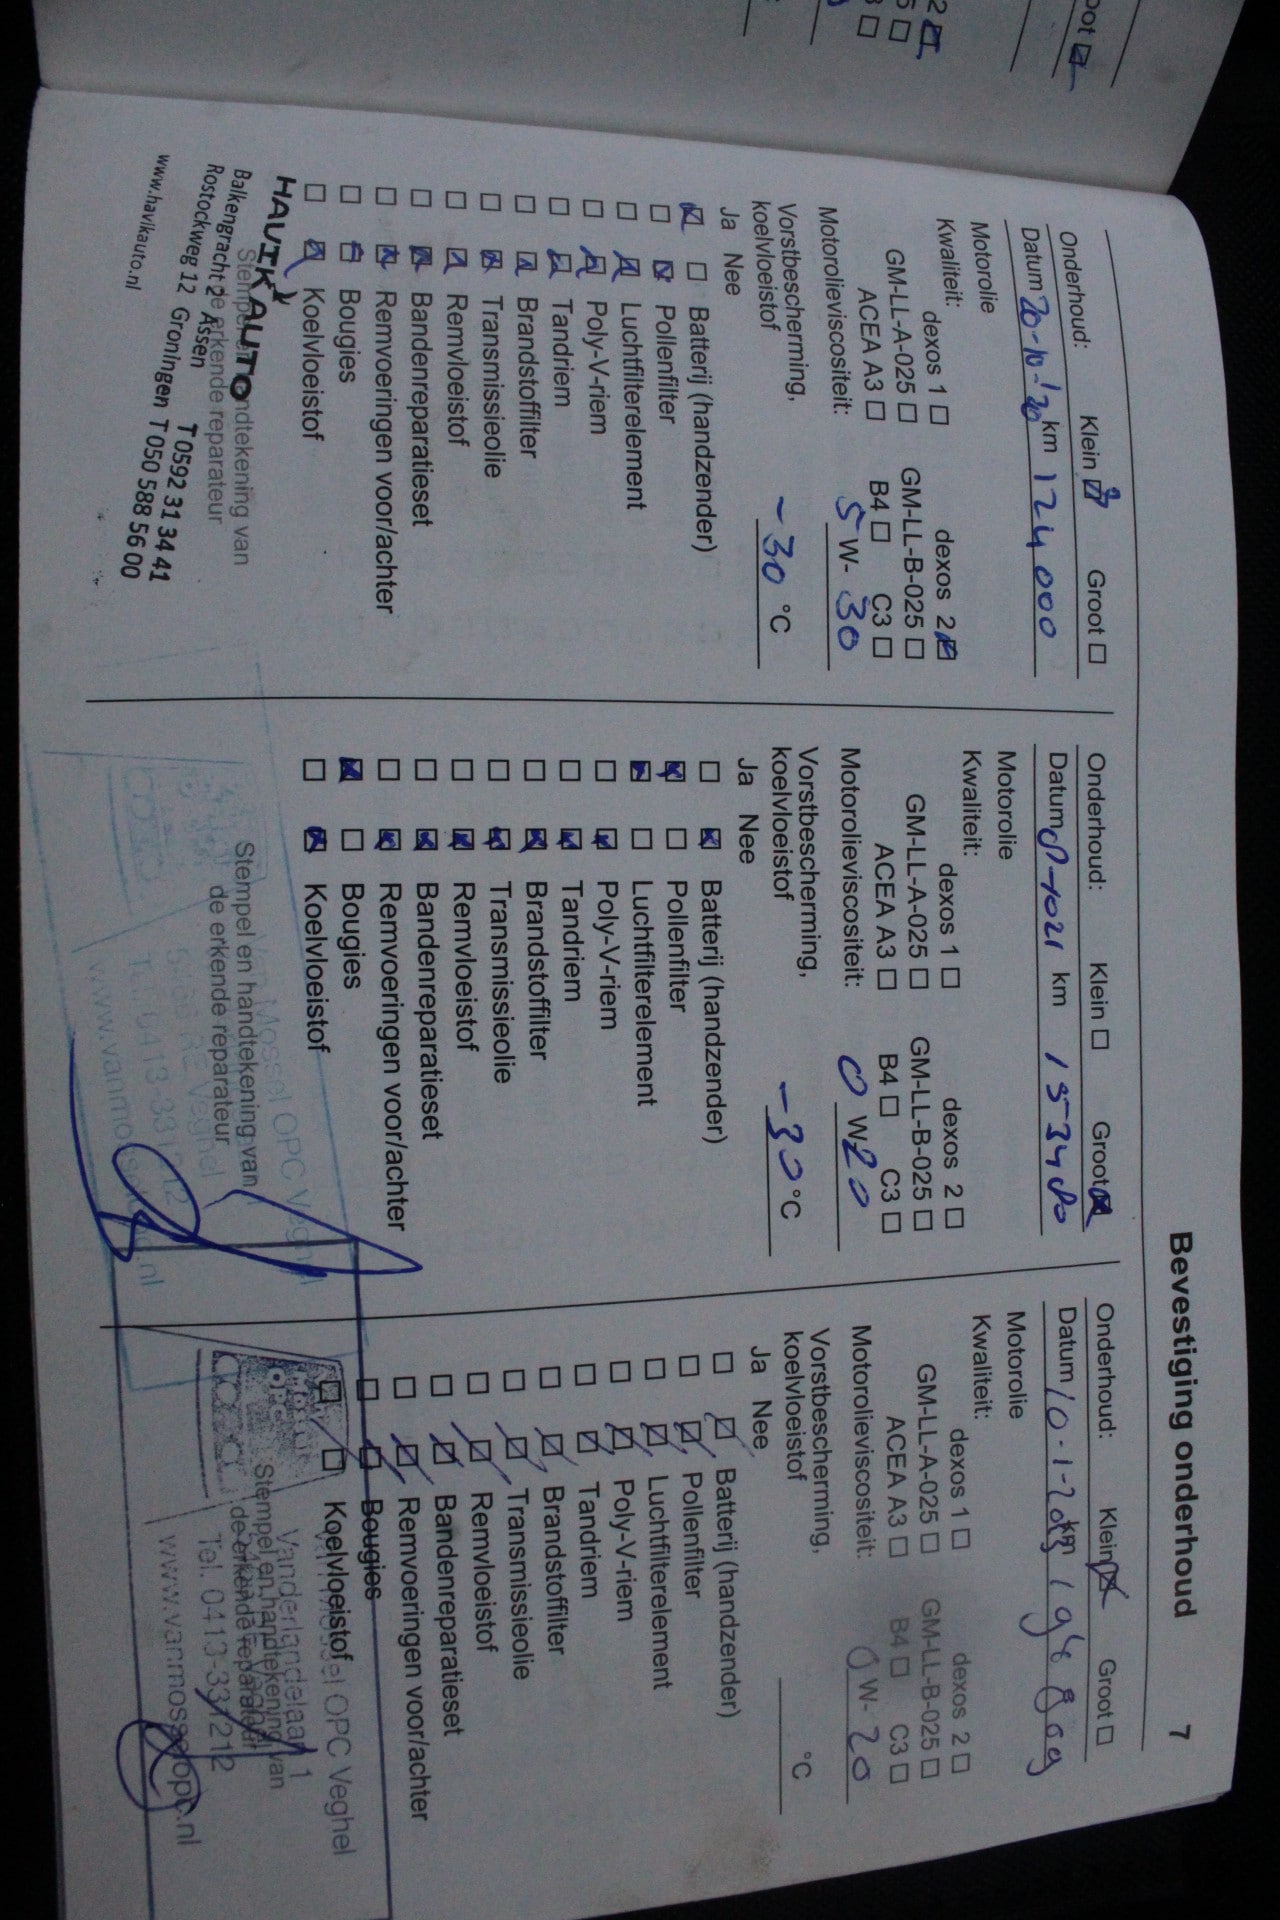 Bevestiging onderhoud 7
Onderhoud: Klein Groot
Datum 20-10-'20 km 124000
Motorolie
Kwaliteit: dexos 1 dexos 2
GM-LL-A-025 GM-LL-B-025
ACEA A3 B4 C3
Motorolieviscositeit: 5 W- 30
Vorstbescherming,
koelvloeistof -30 °C
Ja Nee
Batterij (handzender)
Pollenfilter
Luchtfilterelement
Poly-V-riem
Tandriem
Brandstoffilter
Transmissieolie
Remvloeistof
Bandenreparatieset
Remvoeringen voor/achter
Bougies
Koelvloeistof
HAVIK AUTO
Stempel en handtekening van
de erkende reparateur
Balkengracht 2 Assen T 0592 31 34 41
Rostockweg 12 Groningen T 050 588 56 00
www.havikauto.nl
Onderhoud: Klein Groot
Datum km
Motorolie
Kwaliteit: dexos 1 dexos 2
GM-LL-A-025 GM-LL-B-025
ACEA A3 B4 C3
Motorolieviscositeit: 0 W 20
Vorstbescherming,
koelvloeistof -30 °C
Ja Nee
Batterij (handzender)
Pollenfilter
Luchtfilterelement
Poly-V-riem
Tandriem
Brandstoffilter
Transmissieolie
Remvloeistof
Bandenreparatieset
Remvoeringen voor/achter
Bougies
Koelvloeistof
Stempel en handtekening van
de erkende reparateur
Mossel OPC Veghel
Onderhoud: Klein Groot
Datum 10-1- km
Motorolie
Kwaliteit: dexos 1 dexos 2
GM-LL-A-025 GM-LL-B-025
ACEA A3 B4 C3
Motorolieviscositeit: 0 W- 20
Vorstbescherming,
koelvloeistof °C
Ja Nee
Batterij (handzender)
Pollenfilter
Luchtfilterelement
Poly-V-riem
Tandriem
Brandstoffilter
Transmissieolie
Remvloeistof
Bandenreparatieset
Remvoeringen voor/achter
Bougies
Koelvloeistof
Van Mossel OPC Veghel
Vanderlandelaan 1
Stempel en handtekening van
de erkende reparateur
Tel. 0413-331212
www.vanmosselopc.nl